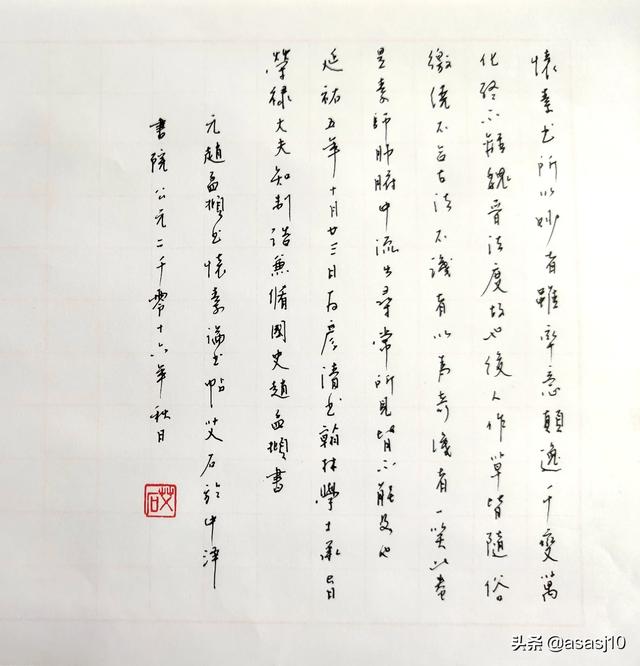 懷素書所以妙者雖率意顛逸千變萬
化終不離魏晉法度故也後人作草皆隨俗
繳繞不合古法不識者以為奇識者一笑此卷
是素師肺腑中流出尋常所見皆不能及也
延祐五年十月廿三日為彥清書翰林學士承旨
榮祿大夫知制誥兼脩國史趙孟頫書
元趙孟頫書懷素論書帖艾石於中澤
書院公元二千零十六年秋日
艾石
头条 @asasj10